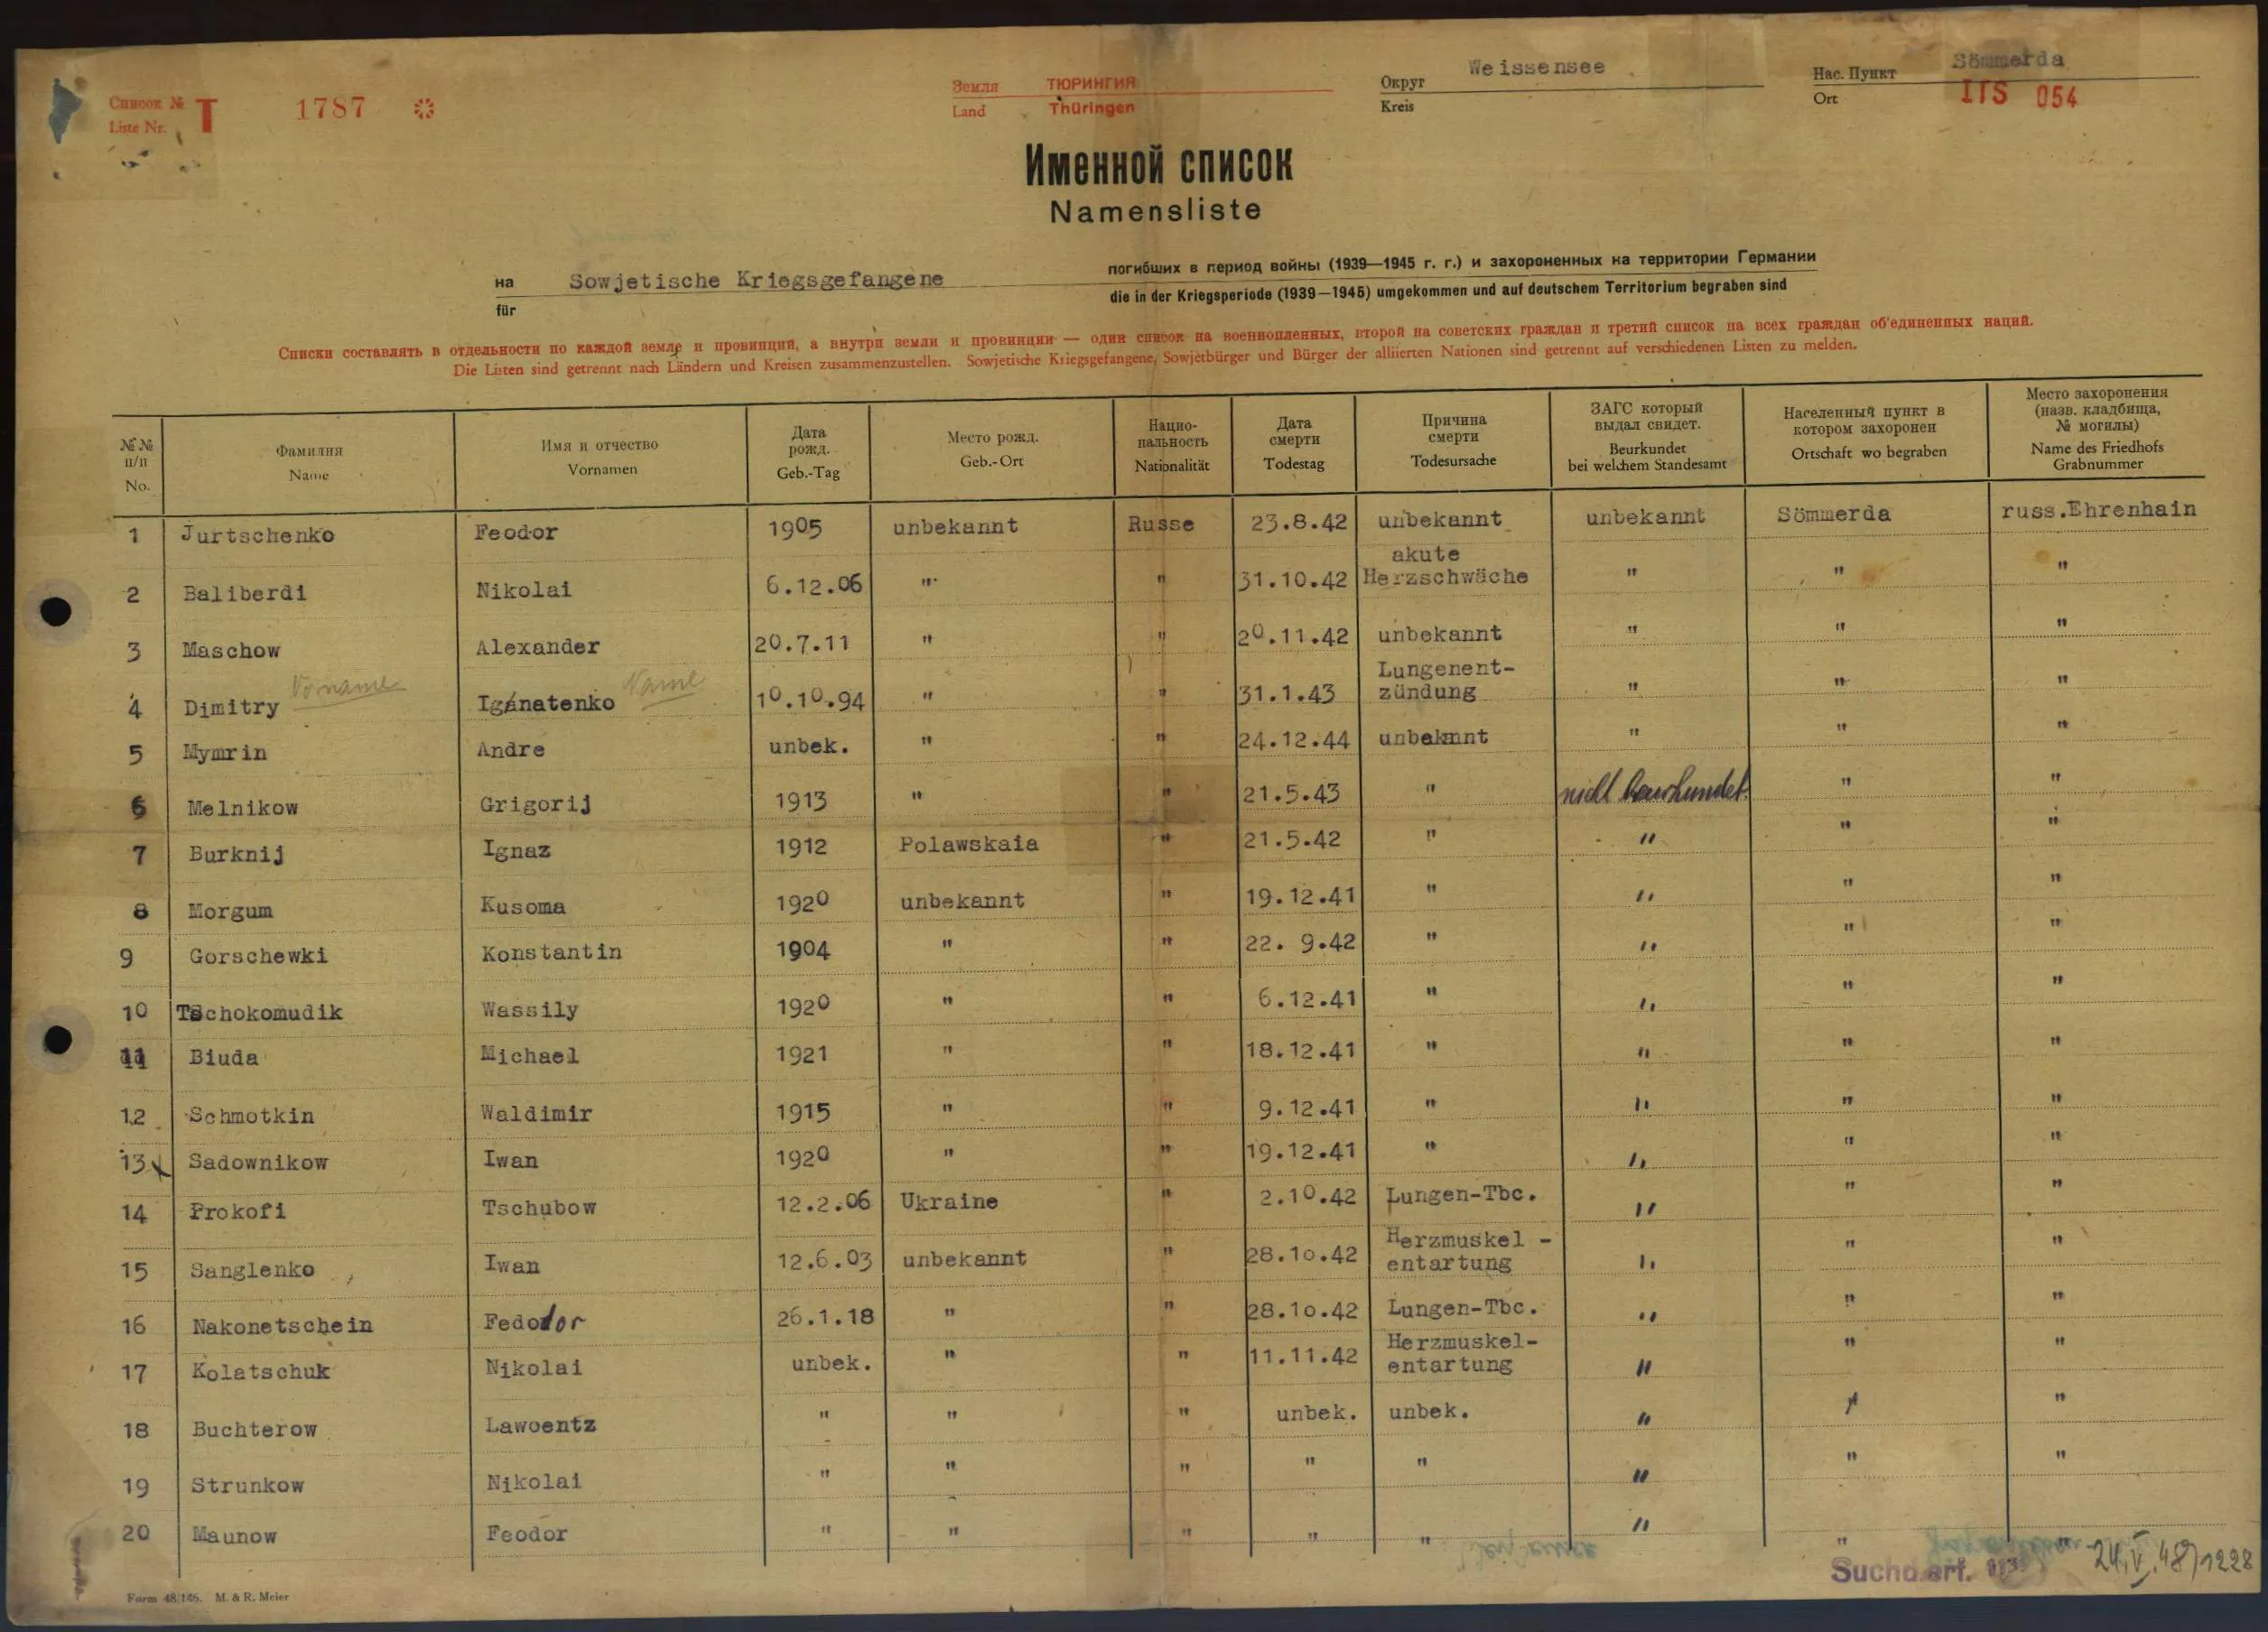 Список № T 1787
Liste Nr.
Земля ТЮРИНГИЯ
Land Thüringen
Округ Weissensee
Kreis
Нас. Пункт Sömmerda
Ort ITS 054
Именной список
Namensliste
на Sowjetische Kriegsgefangene погибших в период войны (1939—1945 г. г.) и захороненных на территории Германии
für die in der Kriegsperiode (1939—1945) umgekommen und auf deutschem Territorium begraben sind
Списки составлять в отдельности по каждой земле и провинций, а внутри земли и провинции — один список на военнопленных, второй на советских граждан и третий список на всех граждан об'единенных наций.
Die Listen sind getrennt nach Ländern und Kreisen zusammenzustellen. Sowjetische Kriegsgefangene, Sowjetbürger und Bürger der alliierten Nationen sind getrennt auf verschiedenen Listen zu melden.
№ № п/п No. Фамилия Name Имя и отчество Vornamen Дата рожд. Geb.-Tag Место рожд. Geb.-Ort Нацио-нальность Nationalität Дата смерти Todestag Причина смерти Todesursache ЗАГС который выдал свидет. Beurkundet bei welchem Standesamt Населенный пункт в котором захоронен Ortschaft wo begraben Место захоронения (назв. кладбища, № могилы) Name des Friedhofs Grabnummer
1 Jurtschenko Feodor 1905 unbekannt Russe 23.8.42 unbekannt unbekannt Sömmerda russ.Ehrenhain
2 Baliberdi Nikolai 6.12.06 " " 31.10.42 akute Herzschwäche " " "
3 Maschow Alexander 20.7.11 " " 20.11.42 unbekannt " " "
4 Dimitry Vorname Iganatenko Name 10.10.94 " " 31.1.43 Lungenent-zündung " " "
5 Mymrin Andre unbek. " " 24.12.44 unbekannt " " "
6 Melnikow Grigorij 1913 " " 21.5.43 " nicht beurkundet. " "
7 Burknij Ignaz 1912 Polawskaia " 21.5.42 " " " "
8 Morgum Kusoma 1920 unbekannt " 19.12.41 " " " "
9 Gorschewki Konstantin 1904 " " 22. 9.42 " " " "
10 Tschokomudik Wassily 1920 " " 6.12.41 " " " "
11 Biuda Michael 1921 " " 18.12.41 " " " "
12 Schmotkin Waldimir 1915 " " 9.12.41 " " " "
13 Sadownikow Iwan 1920 " " 19.12.41 " " " "
14 Prokofi Tschubow 12.2.06 Ukraine " 2.10.42 Lungen-Tbc. " " "
15 Sanglenko Iwan 12.6.03 unbekannt " 28.10.42 Herzmuskel - entartung " " "
16 Nakonetschein Fedodor 26.1.18 " " 28.10.42 Lungen-Tbc. " " "
17 Kolatschuk Nikolai unbek. " " 11.11.42 Herzmuskel-entartung " " "
18 Buchterow Lawoentz " " " unbek. unbek. " " "
19 Strunkow Nikolai " " " " " " " "
20 Maunow Feodor " " " " " " " "
Form 48/146. M. & R. Meier
Suchd.erf. 24.V.48/1228